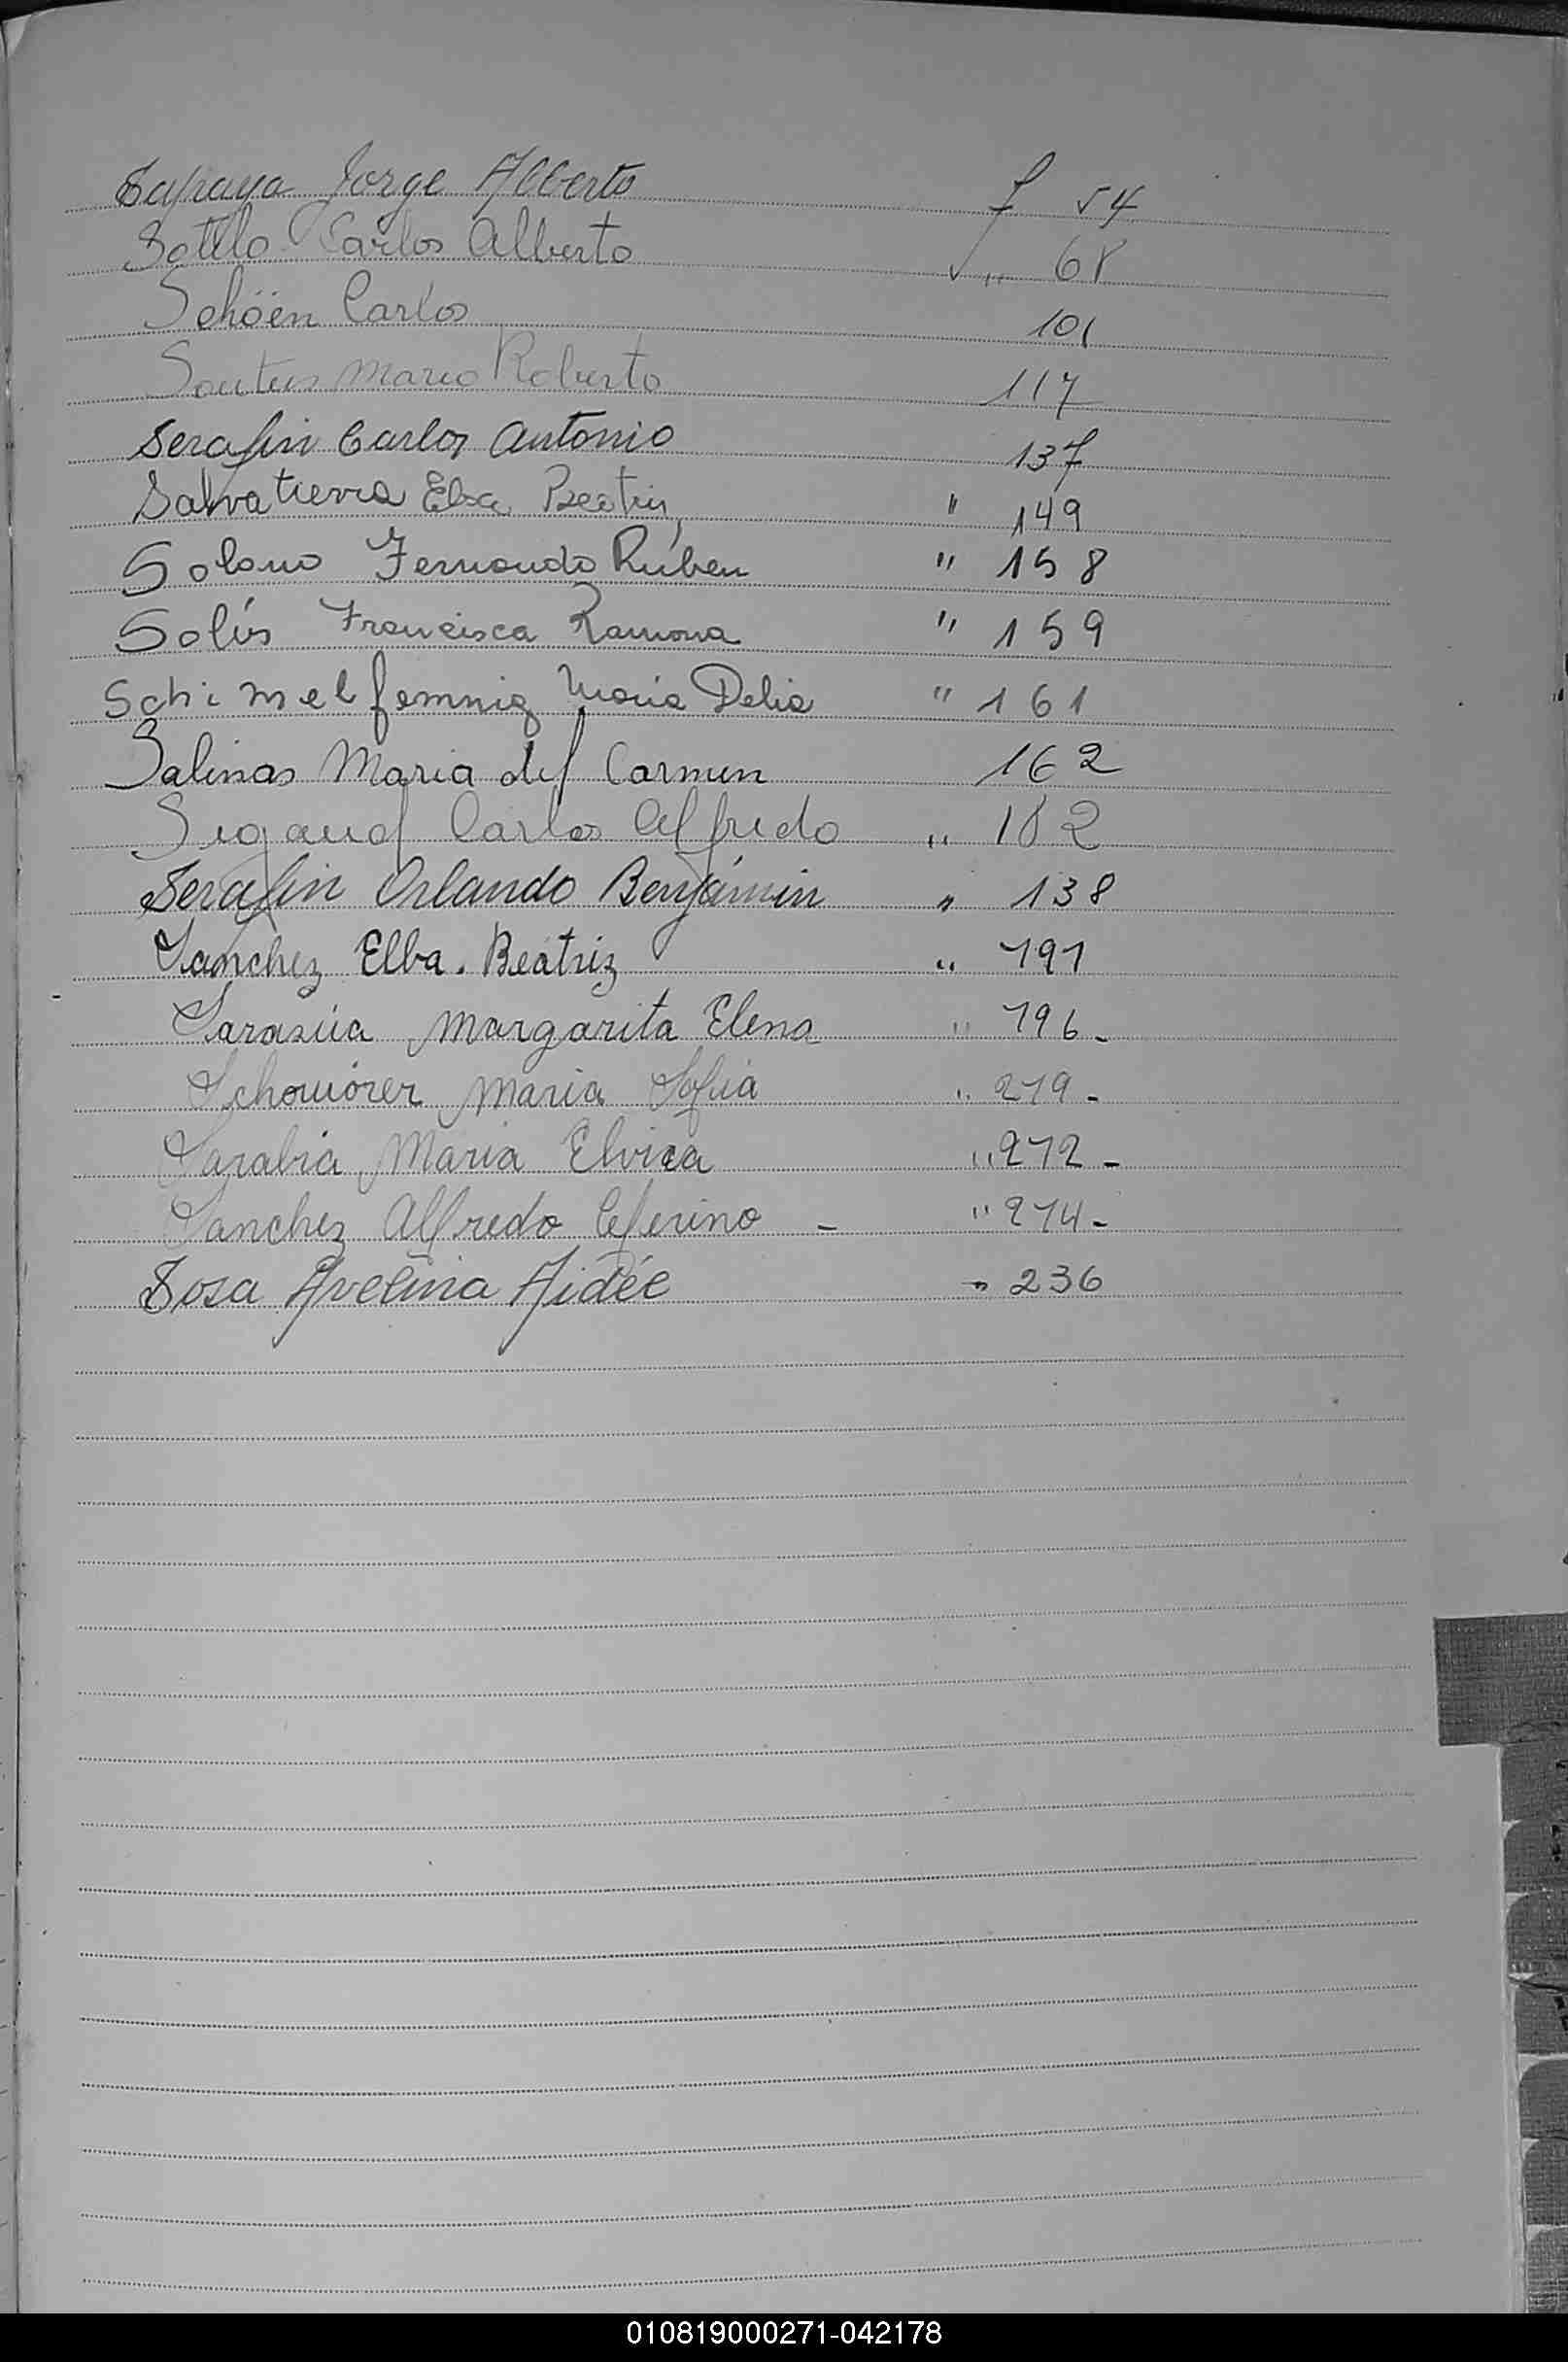 Sapaya Jorge Alberto f 54
Sotelo Carlos Alberto " 68
Schöen Carlos 101
Mario Roberto 117
Serafin Carlos Antonio 137
Salvatierra Elsa Beatriz " 149
Solano Fernando Rúben " 158
Solís Francisca Ramona " 159
Schimelfemnig María Delia " 161
Salinas Maria del Carmen 162
Sigaud Carlos Alfredo " 182
Serafin Orlando Benjamin " 138
Sanchez Elba. Beatriz " 191
Sarasúa Margarita Elena " 196-
Maria Sofia " 219-
Sarabia Maria Elvira " 212-
Sanchez Alfredo Ceferino - " 214-
Sosa Avelina Aidée " 236
010819000271-042178